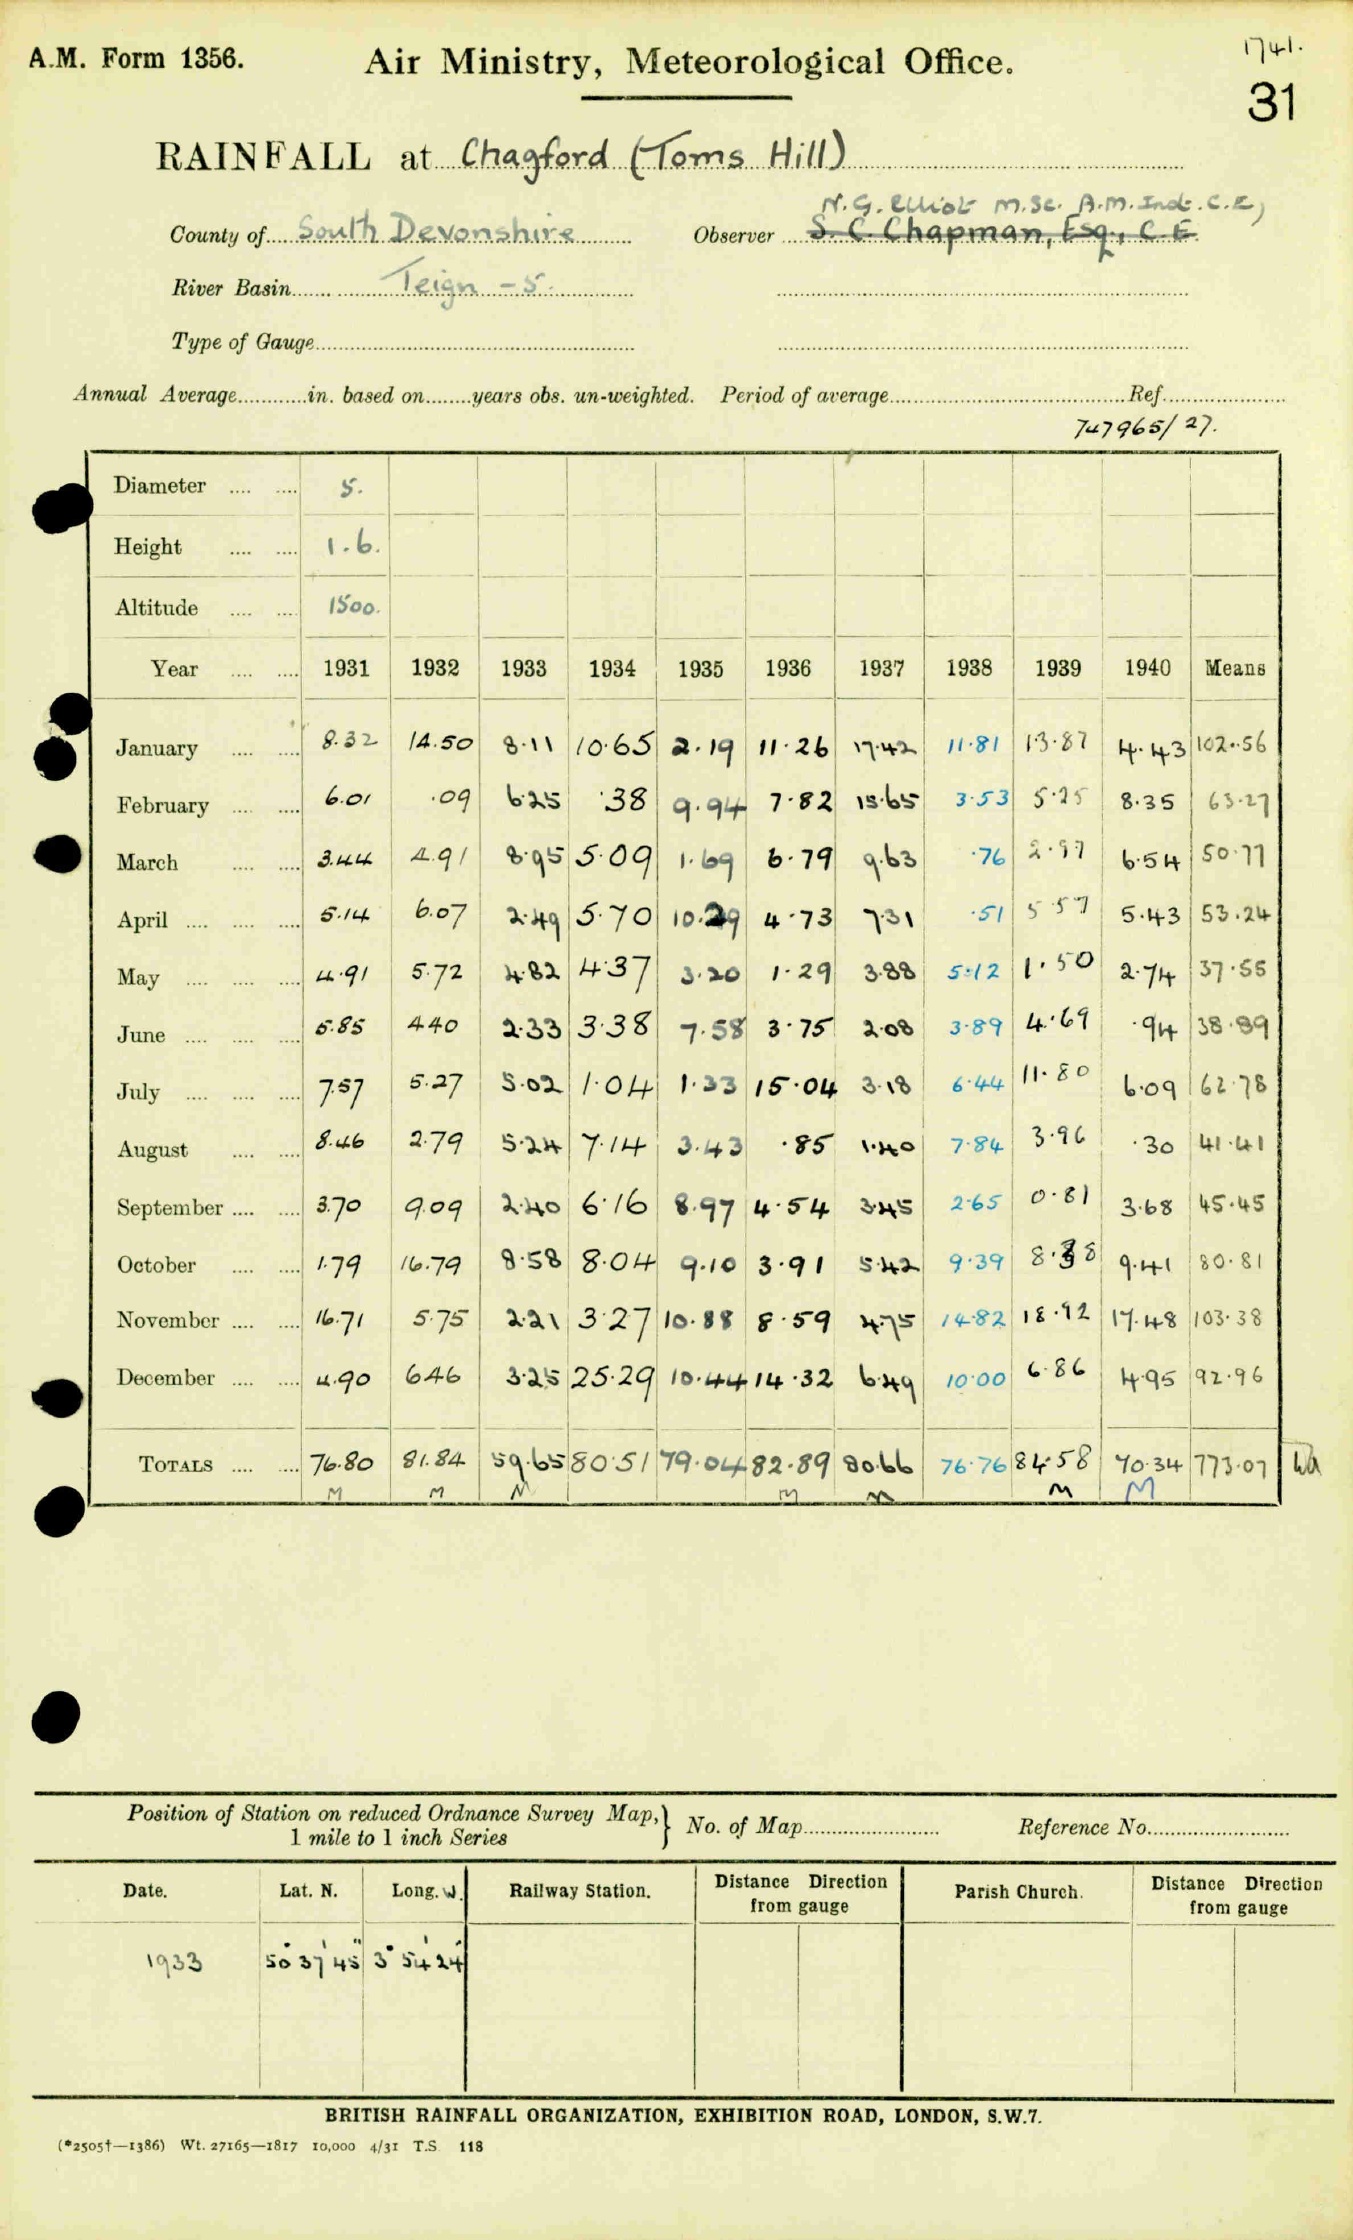 A.M. Form 1356.
Air Ministry, Meteorological Office.
1741.
31
RAINFALL at Chagford (Toms Hill)
N. G. Elliot M.Sc. A.M.Inst.C.E,
County of South Devonshire Observer S. C. Chapman, Esq., C.E.
River Basin Teign – 5.
Type of Gauge
Annual Average in. based on years obs. un-weighted. Period of average Ref.
747965/27.
Diameter 5.
Height 1.6.
Altitude 1500.
Year 1931 1932 1933 1934 1935 1936 1937 1938 1939 1940 Means
January 8.32 14.50 8.11 10.65 2.19 11.26 17.42 11.81 13.87 4.43 102.56
February 6.01 .09 6.25 .38 9.94 7.82 15.65 3.53 5.25 8.35 63.27
March 3.44 4.91 8.95 5.09 1.69 6.79 9.63 .76 2.97 6.54 50.77
April 5.14 6.07 2.49 5.70 10.29 4.73 7.31 .51 5.57 5.43 53.24
May 4.91 5.72 4.82 4.37 3.20 1.29 3.88 5.12 1.50 2.74 37.55
June 5.85 4.40 2.33 3.38 7.58 3.75 2.08 3.89 4.69 .94 38.89
July 7.57 5.27 5.02 1.04 1.33 15.04 3.18 6.44 11.80 6.09 62.78
August 8.46 2.79 5.24 7.14 3.43 .85 1.40 7.84 3.96 .30 41.41
September 3.70 9.09 2.40 6.16 8.97 4.54 3.45 2.65 0.81 3.68 45.45
October 1.79 16.79 8.58 8.04 9.10 3.91 5.42 9.39 8.38 9.41 80.81
November 16.71 5.75 2.21 3.27 10.88 8.59 4.75 14.82 18.92 17.48 103.38
December 4.90 6.46 3.25 25.29 10.44 14.32 6.49 10.00 6.86 4.95 92.96
TOTALS 76.80 81.84 59.65 80.51 79.04 82.89 80.66 76.76 84.58 70.34 773.07
M M M M M M M
Position of Station on reduced Ordnance Survey Map, 1 mile to 1 inch Series } No. of Map Reference No.
Date. Lat. N. Long. W. Railway Station. Distance Direction from gauge Parish Church. Distance Direction from gauge
1933 50° 37' 45" 3° 54' 24"
BRITISH RAINFALL ORGANIZATION, EXHIBITION ROAD, LONDON, S.W.7.
(*2505†—1386) Wt. 27165—1817 10,000 4/31 T.S. 118